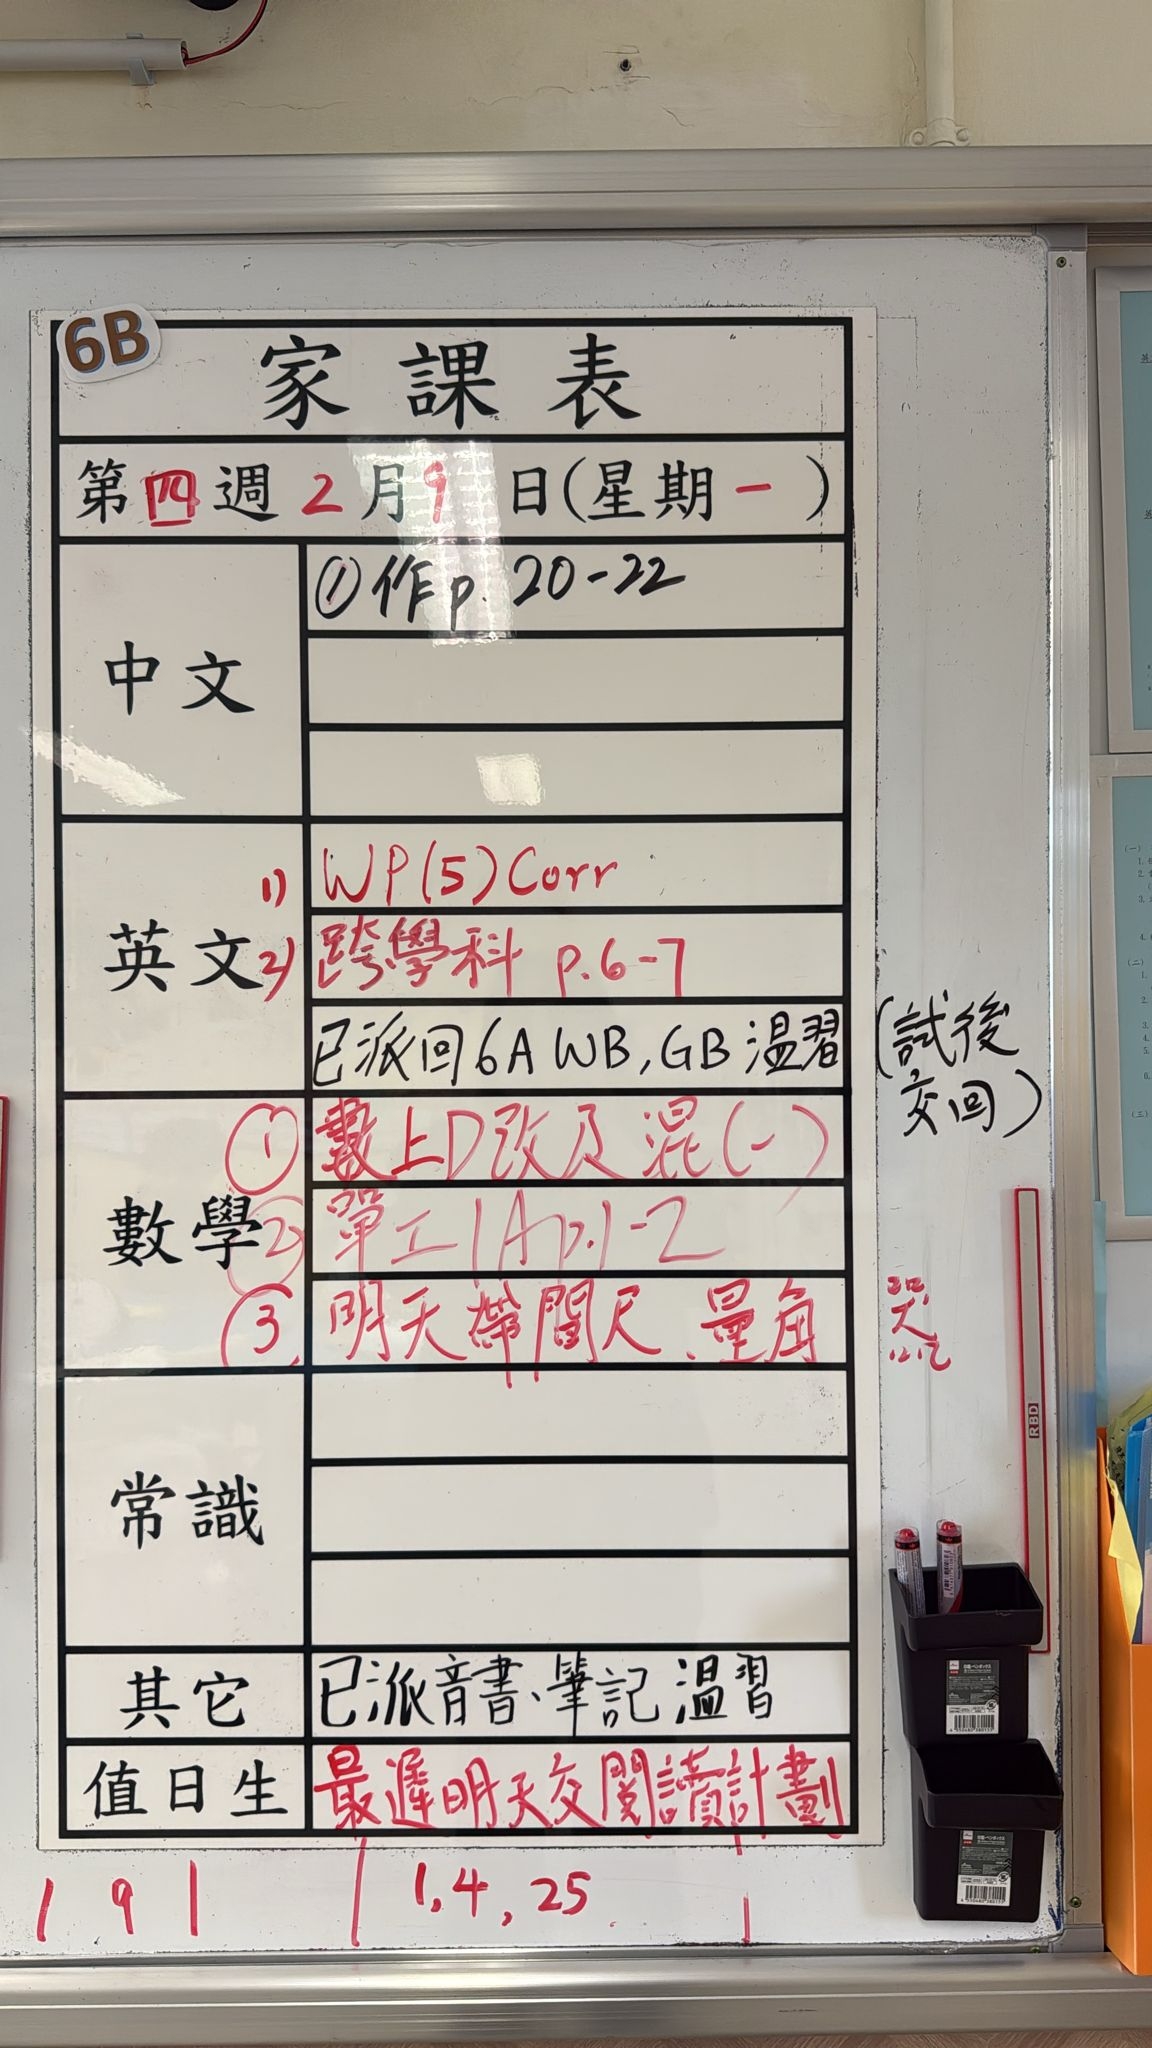 6B
家課表
第四週 2月9日(星期一)
中文
①作p. 20-22
英文
1) WP(5) Corr
2) 跨學科 p.6-7
已派回6A WB, GB 温習 (試後交回)
數學
① 數上D改及混(一)
② 單工1A p.1-2
③ 明天帶間尺、量角器
常識
其它
已派音書、筆記 温習
值日生
最遲明天交閱讀計劃
9
1, 4, 25
RBD